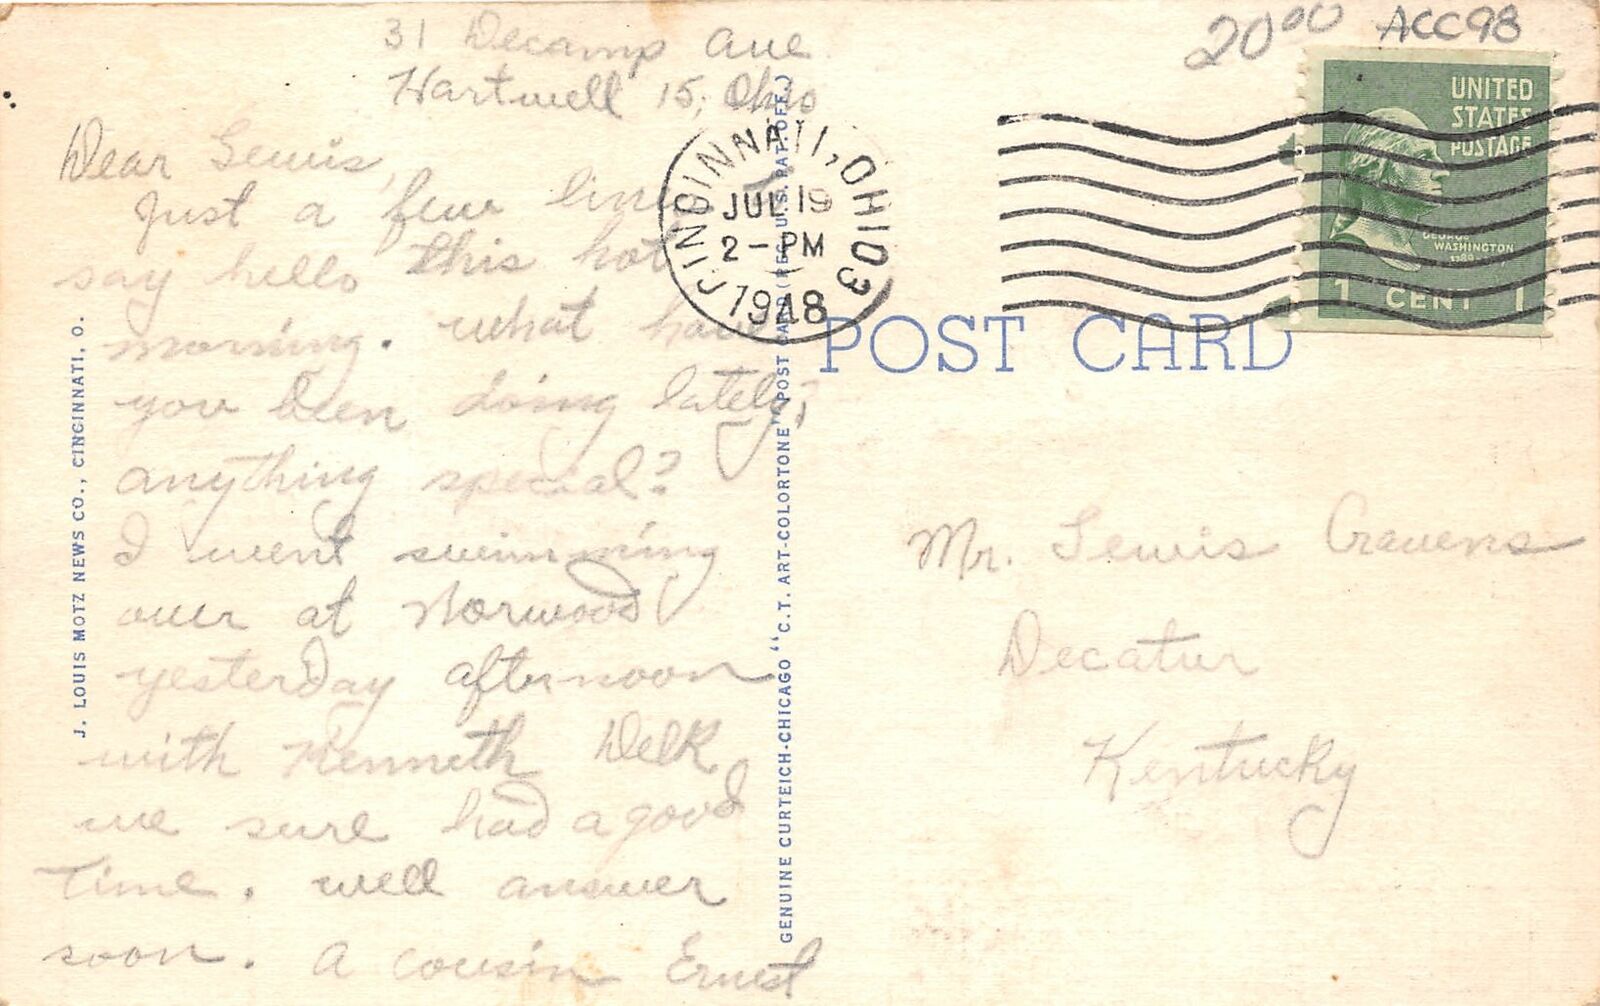 31 Decamp Ave
Hartwell 15, Ohio
Dear Lewis,
Just a few lines
say hello this hot
morning. what have
you been doing lately,
anything special?
I went swimming
over at Norwood
yesterday afternoon
with Kenneth Delk
we sure had a good
time. well answer
soon. A cousin Ernest
J. LOUIS MOTZ NEWS CO., CINCINNATI, O.
GENUINE CURTEICH-CHICAGO "C.T. ART-COLORTONE" POST CARD (REG. U.S. PAT. OFF.)
2000 ACC98
CINCINNATI, OHIO 3
JUL 19
2-PM
1948
UNITED
STATES
POSTAGE
GEORGE
WASHINGTON
1 CENT 1
POST CARD
Mr. Lewis Cravens
Decatur
Kentucky